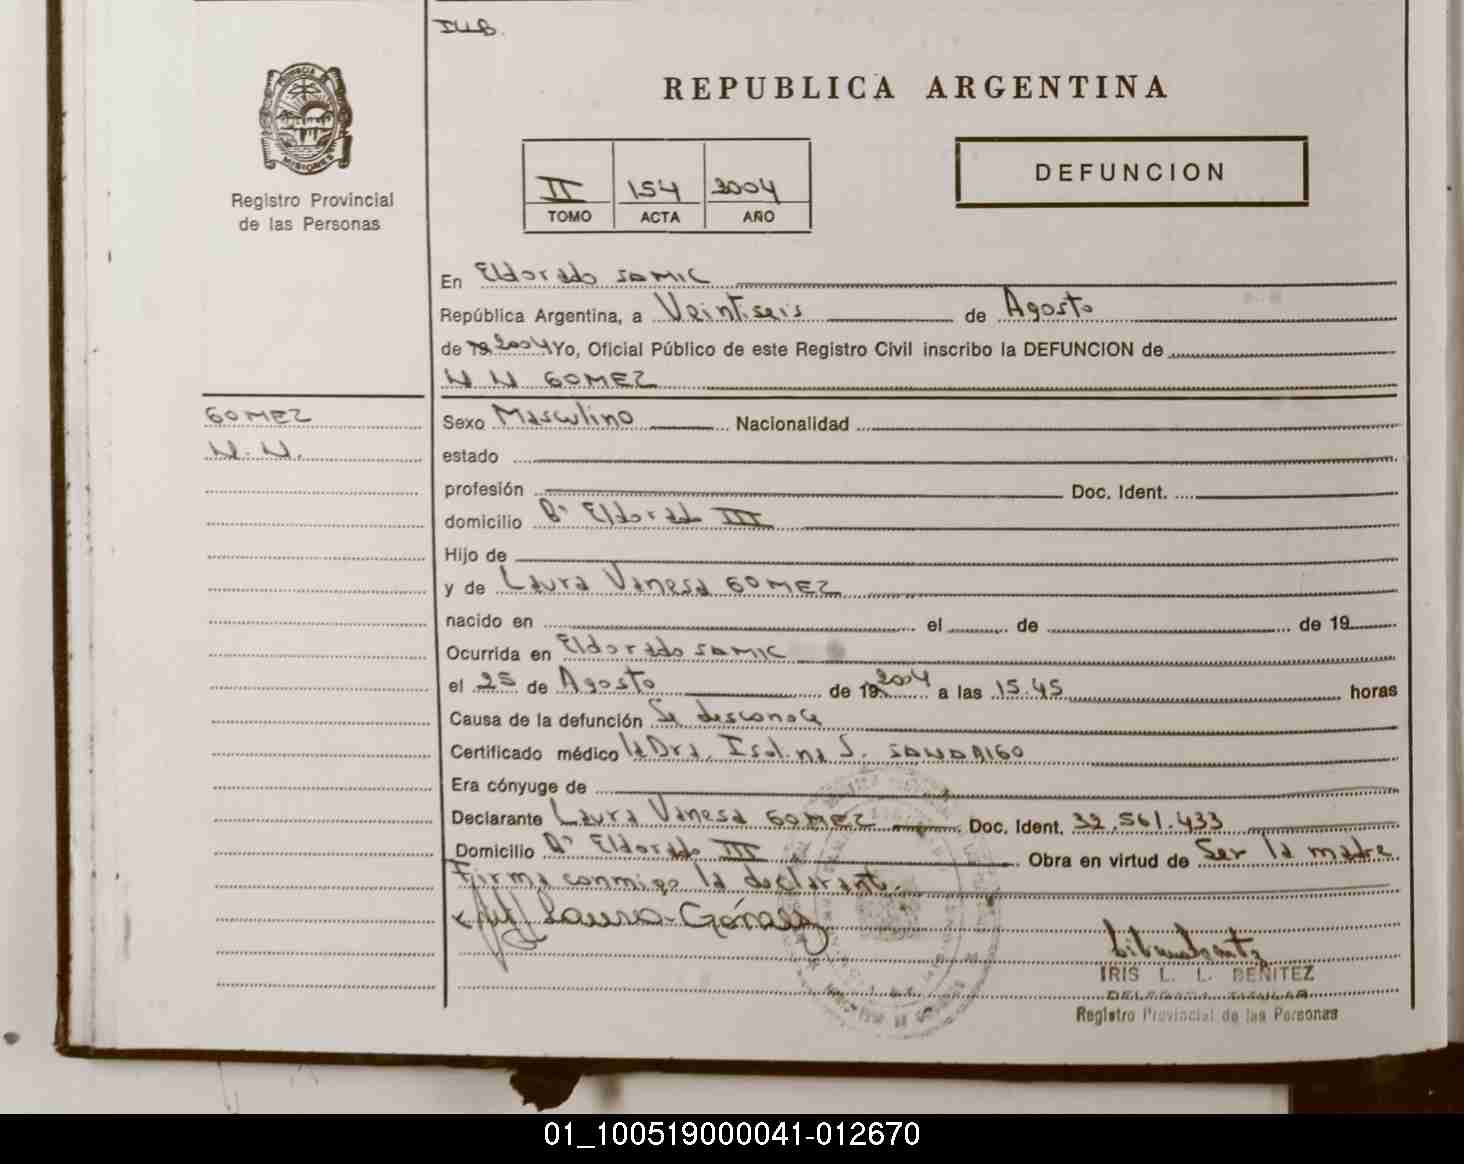 REPUBLICA ARGENTINA
PROVINCIA DE
MISIONES
Registro Provincial
de las Personas
II 154 2004
TOMO ACTA AÑO
DEFUNCION
En Eldorado SAMIC
República Argentina, a Veintiseis de Agosto
de 19 2004 Yo, Oficial Público de este Registro Civil inscribo la DEFUNCION de
N N GOMEZ
GOMEZ
N. N.
Sexo Masculino Nacionalidad
estado
profesión Doc. Ident.
domicilio Bº Eldorado III
Hijo de
y de Laura Vanesa GOMEZ
nacido en el de de 19
Ocurrida en Eldorado SAMIC
el 25 de Agosto de 19 2004 a las 15.45 horas
Causa de la defunción Se desconoce
Certificado médico la Dra. Isolina S. SANDRIGO
Era cónyuge de
Declarante Laura Vanesa GOMEZ Doc. Ident. 32.561.433
Domicilio Bº Eldorado III Obra en virtud de Ser la madre
Firma conmigo la declarante.
Laura Gómez
IRIS L. L. BENITEZ
DELEGADA TITULAR
Registro Provincial de las Personas
01_100519000041-012670